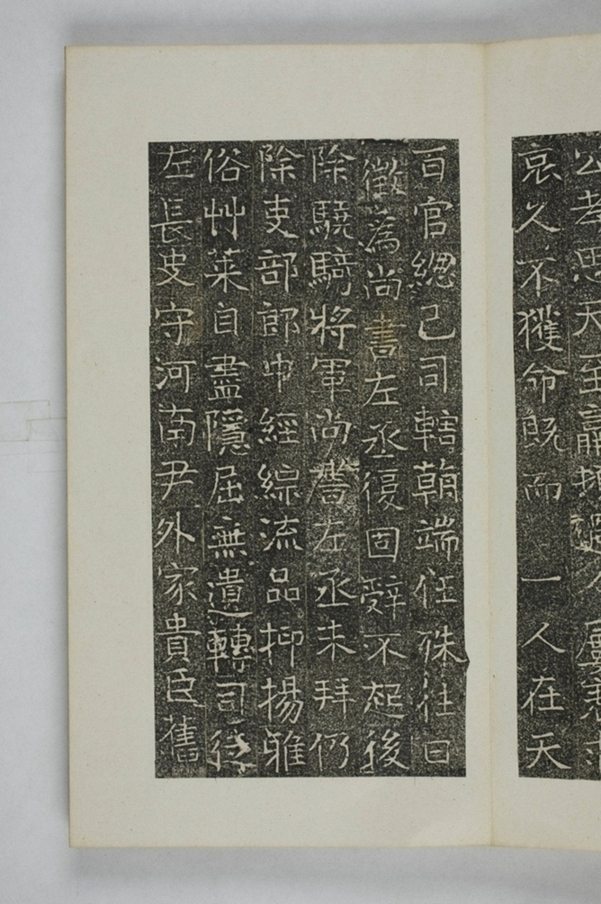 公孝思天至
哀久不獲命既而一人在天
百官總己司轄朝端任殊往日
徵為尚書左丞復固辭不起後
除驍騎將軍尚書左丞未拜仍
除吏部郎中經綜流品抑揚雅
俗艸萊自盡隱屈無遺轉司徒
左長史守河南尹外家貴臣舊